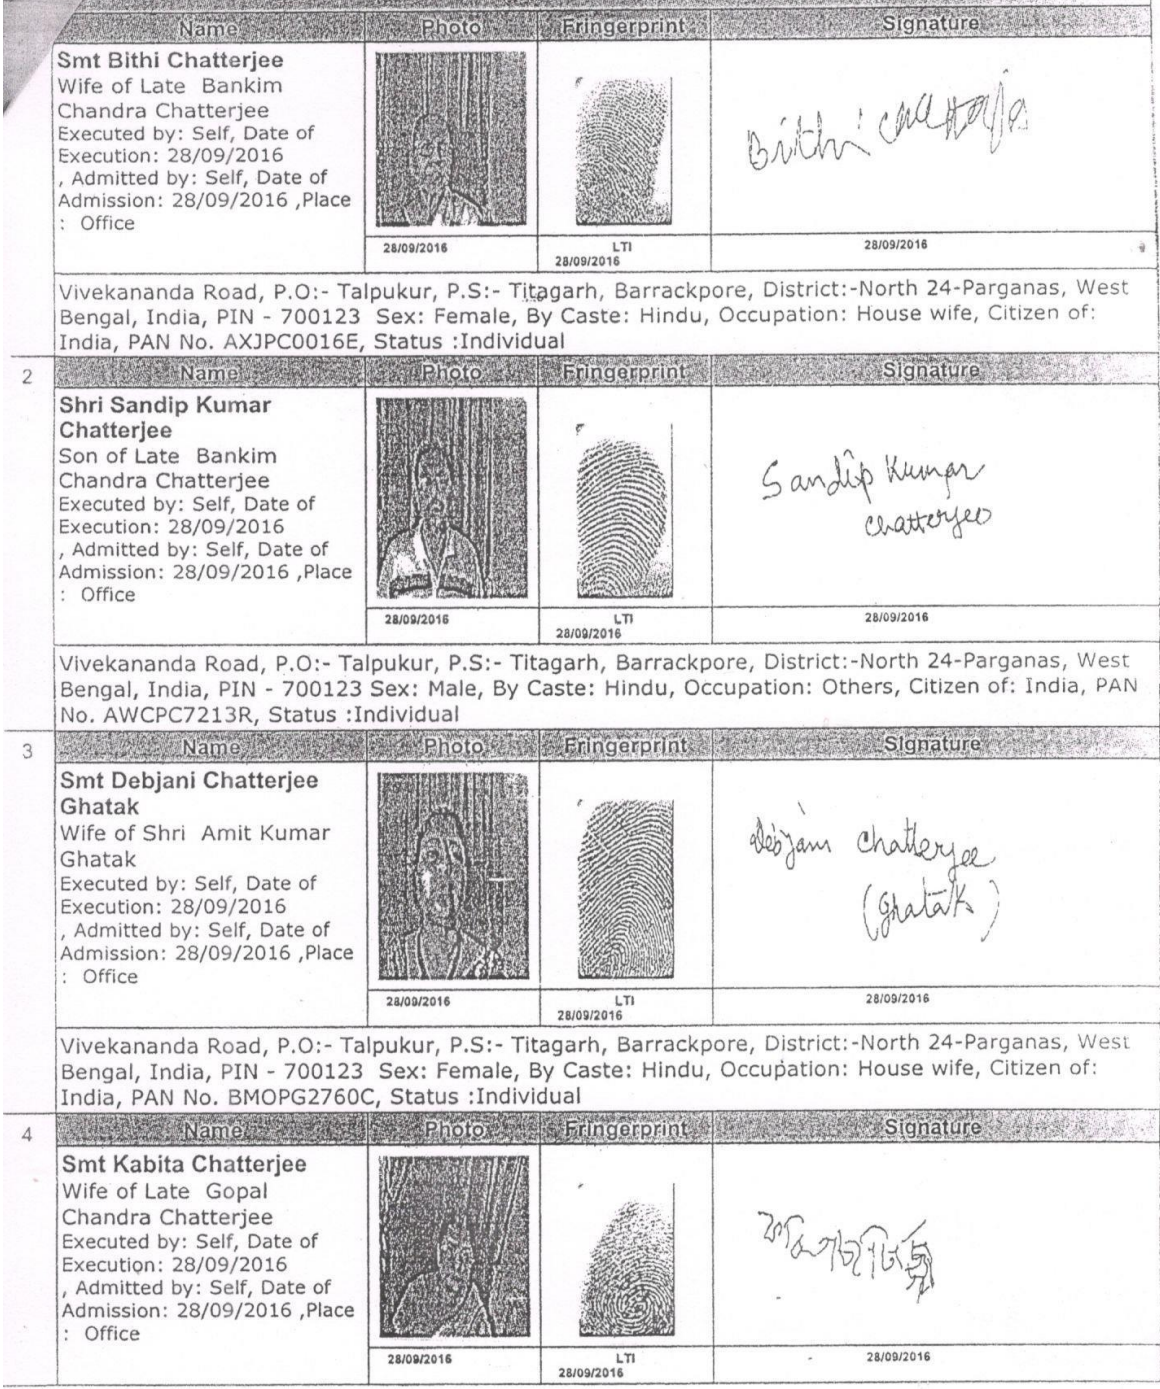 Name Photo Fringerprint Signature
Smt Bithi Chatterjee
Wife of Late Bankim
Chandra Chatterjee
Executed by: Self, Date of
Execution: 28/09/2016
, Admitted by: Self, Date of
Admission: 28/09/2016 ,Place
: Office
Bithi Chatterjee
28/09/2016 LTI 28/09/2016
28/09/2016
Vivekananda Road, P.O:- Talpukur, P.S:- Titagarh, Barrackpore, District:-North 24-Parganas, West
Bengal, India, PIN - 700123 Sex: Female, By Caste: Hindu, Occupation: House wife, Citizen of:
India, PAN No. AXJPC0016E, Status :Individual
2 Name Photo Fringerprint Signature
Shri Sandip Kumar
Chatterjee
Son of Late Bankim
Chandra Chatterjee
Executed by: Self, Date of
Execution: 28/09/2016
, Admitted by: Self, Date of
Admission: 28/09/2016 ,Place
: Office
Sandip Kumar
Chatterjee
28/09/2016 LTI 28/09/2016
28/09/2016
Vivekananda Road, P.O:- Talpukur, P.S:- Titagarh, Barrackpore, District:-North 24-Parganas, West
Bengal, India, PIN - 700123 Sex: Male, By Caste: Hindu, Occupation: Others, Citizen of: India, PAN
No. AWCPC7213R, Status :Individual
3 Name Photo Fringerprint Signature
Smt Debjani Chatterjee
Ghatak
Wife of Shri Amit Kumar
Ghatak
Executed by: Self, Date of
Execution: 28/09/2016
, Admitted by: Self, Date of
Admission: 28/09/2016 ,Place
: Office
Debjani Chatterjee
(Ghatak)
28/09/2016 LTI 28/09/2016
28/09/2016
Vivekananda Road, P.O:- Talpukur, P.S:- Titagarh, Barrackpore, District:-North 24-Parganas, West
Bengal, India, PIN - 700123 Sex: Female, By Caste: Hindu, Occupation: House wife, Citizen of:
India, PAN No. BMOPG2760C, Status :Individual
4 Name Photo Fringerprint Signature
Smt Kabita Chatterjee
Wife of Late Gopal
Chandra Chatterjee
Executed by: Self, Date of
Execution: 28/09/2016
, Admitted by: Self, Date of
Admission: 28/09/2016 ,Place
: Office
28/09/2016 LTI 28/09/2016
28/09/2016